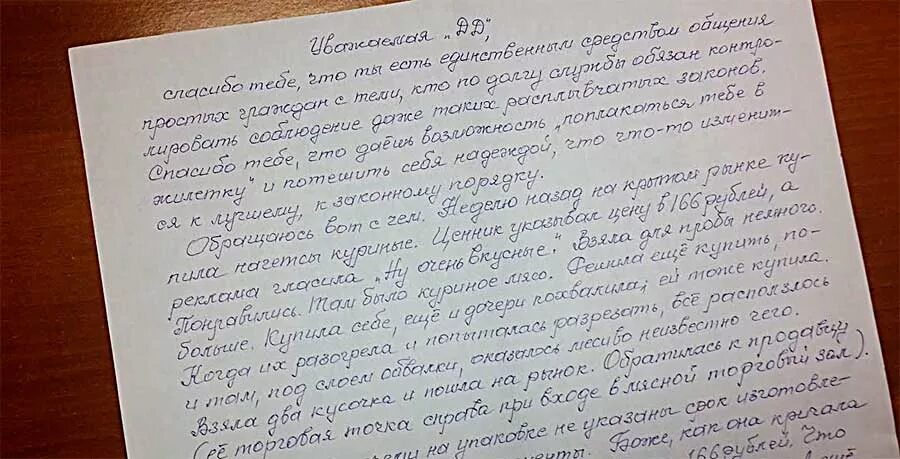 Уважаемая „ДД“,
спасибо тебе, что ты есть единственным средством общения
простых граждан с теми, кто по долгу службы обязан контро-
лировать соблюдение даже таких расплывчатых законов.
Спасибо тебе, что даёшь возможность „поплакаться тебе в
жилетку“ и потешить себя надеждой, что что-то изменит-
ся к лучшему, к законному порядку.
Обращаюсь вот с чем. Неделю назад на крытом рынке ку-
пила нагетсы куриные. Ценник указывал цену в 166 рублей, а
реклама гласила „Ну очень вкусные“. Взяла для пробы немного.
Понравились. Там было куриное мясо. Решила ещё купить, по-
больше. Купила себе, ещё и дочери похвалила, ей тоже купила.
Когда их разогрела и попыталась разрезать, всё расползлось
и там, под слоем обвалки, оказалось месиво неизвестно чего.
Взяла два кусочка и пошла на рынок. Обратилась к продавцу
(её торговая точка справа при входе в мясной торговый зал).
на упаковке не указаны срок изготовле-
Боже, как она кричала
166 рублей. Что